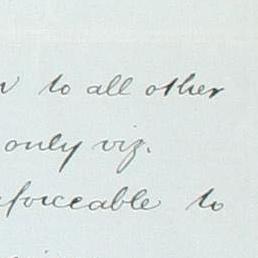 to all other
only viz.
forceable to